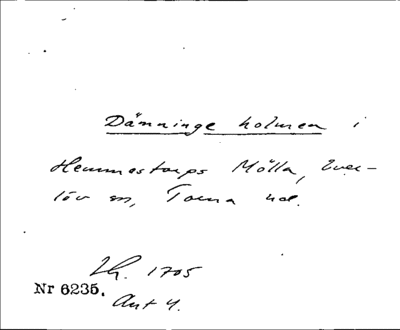 Dämninge holmen i
Hemmestorps Mölla, Ever-
löv sn, Torna hd.
Lh. 1705
Nr 6235.
Ant 4.